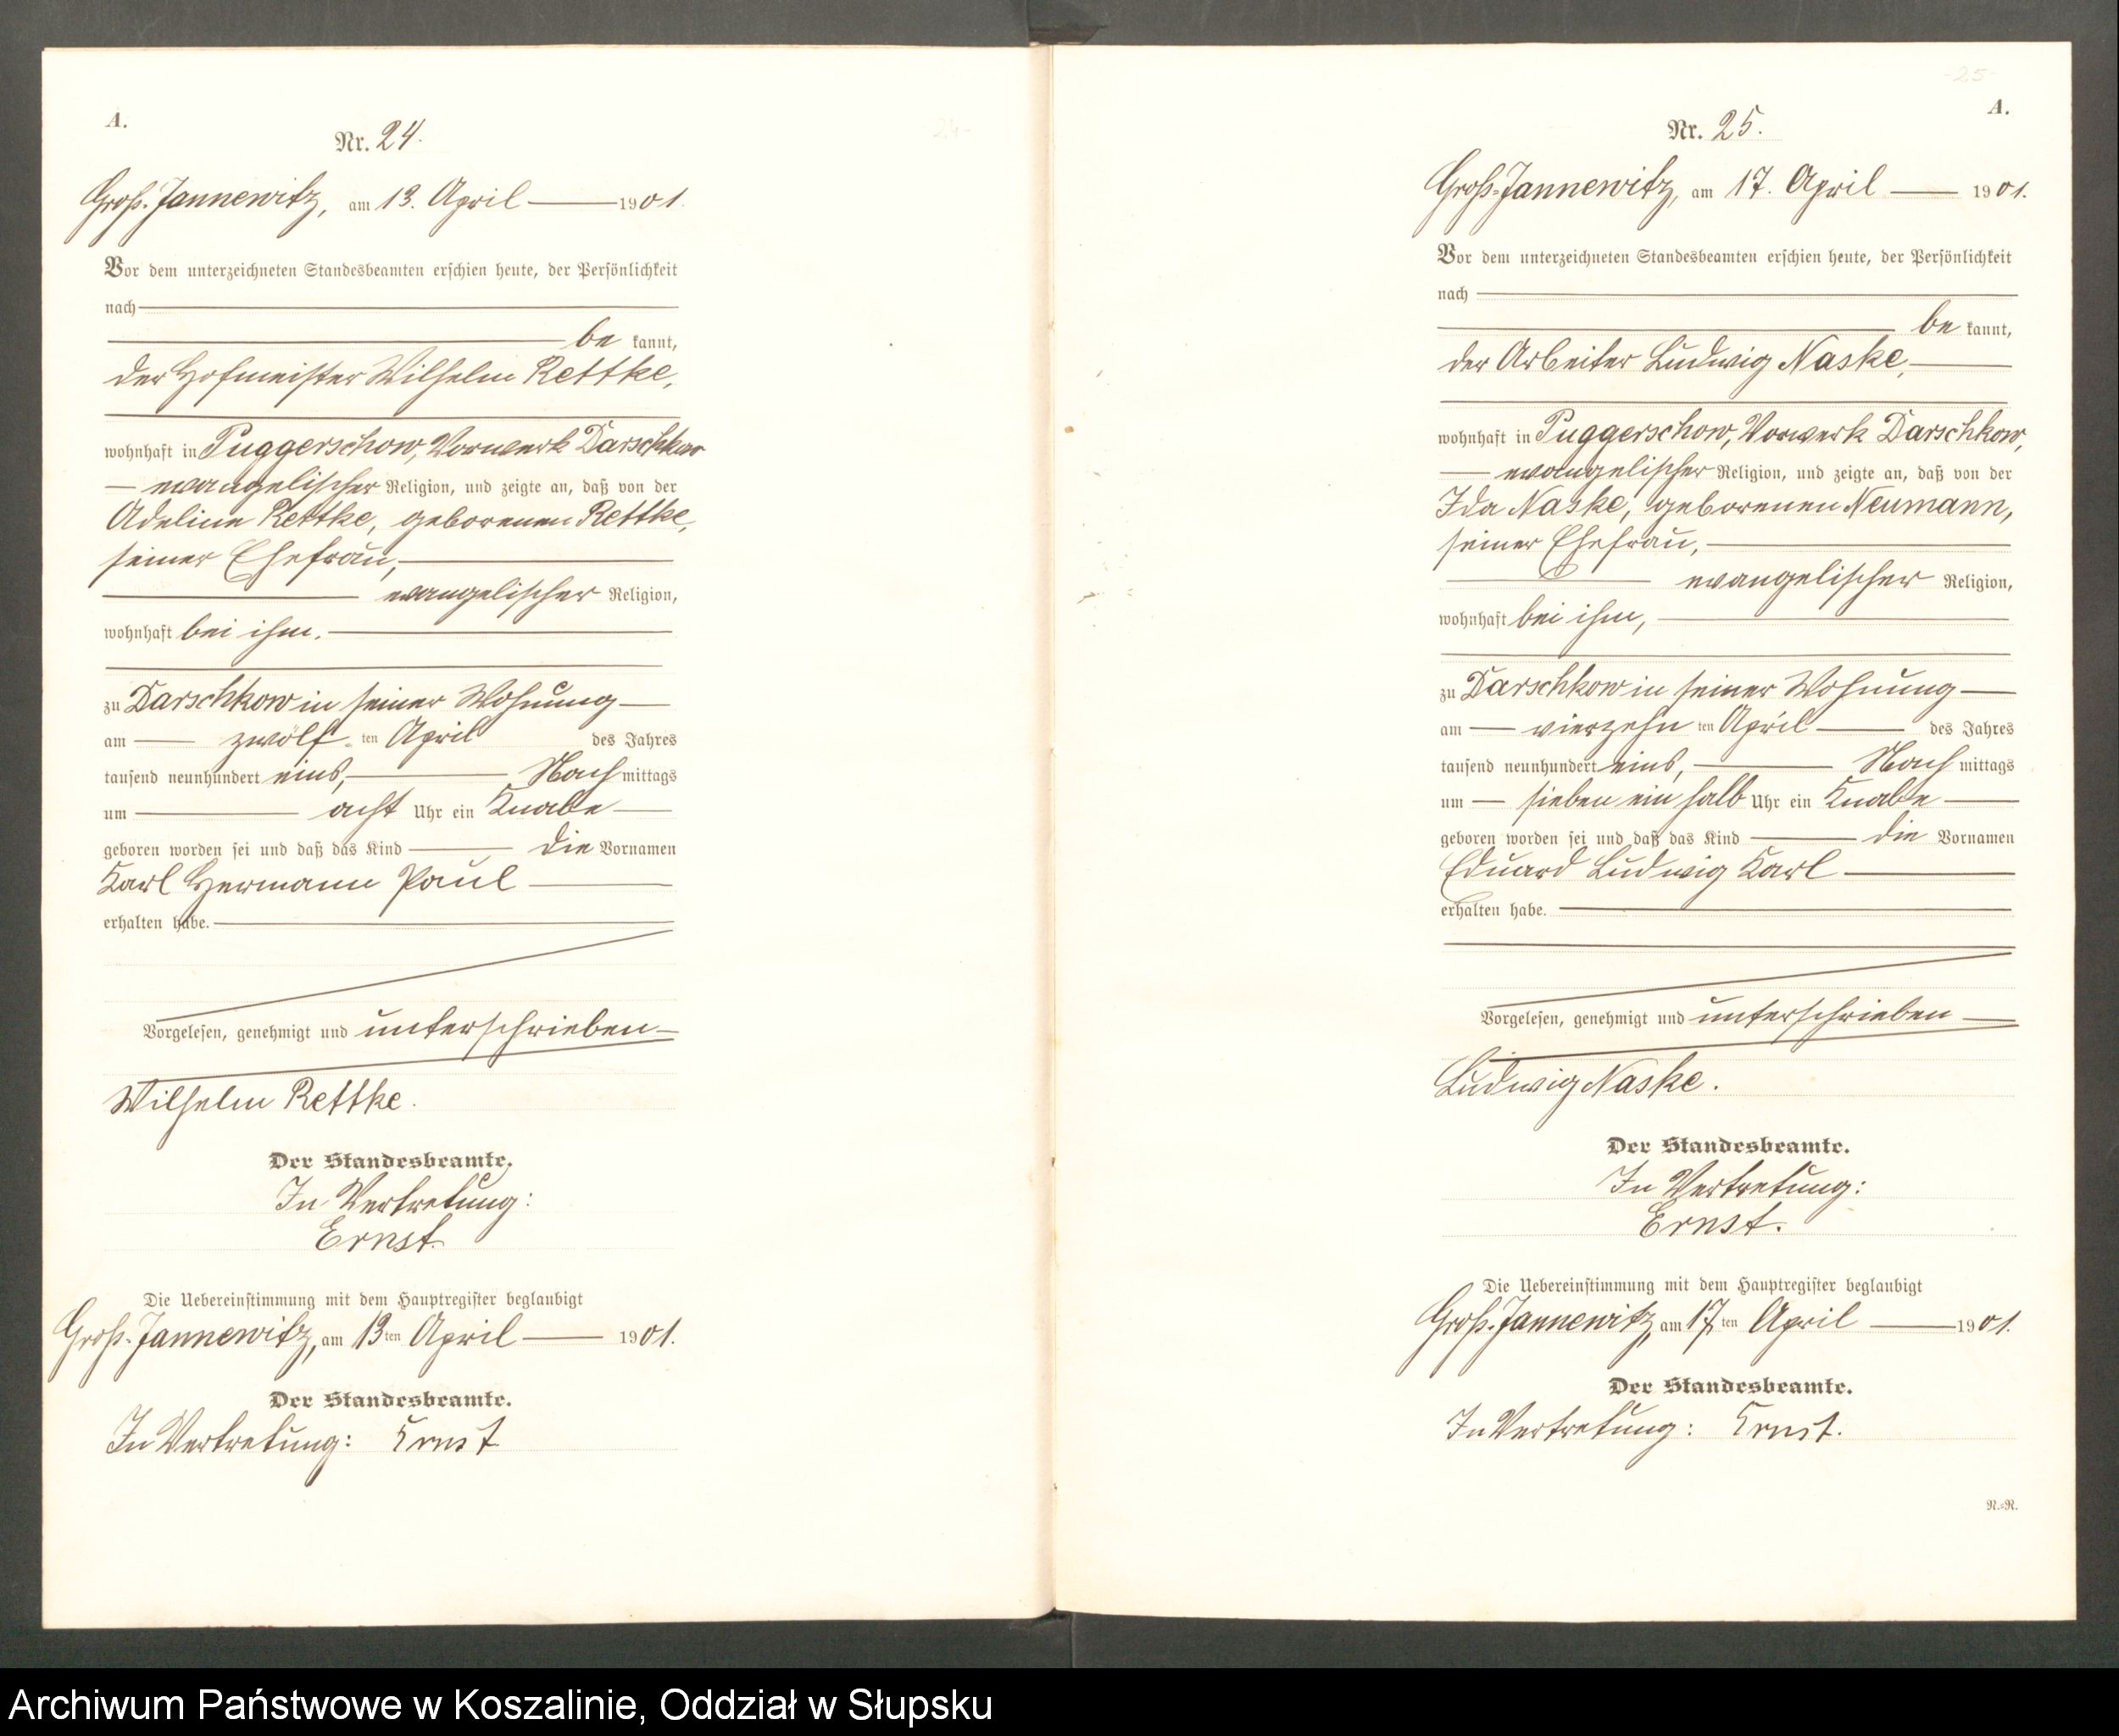 A.
Nr. 24.
Groß-Jannewitz, am 13. April 1901.
Vor dem unterzeichneten Standesbeamten erschien heute, der Persönlichkeit
nach
be kannt,
der Hofmeister Wilhelm Rettke,
wohnhaft in Puggerschow, Vorwerk Darschkow
evangelischer Religion, und zeigte an, daß von der
Adeline Rettke, geborenen Rettke,
seiner Ehefrau,
evangelischer Religion,
wohnhaft bei ihm.
zu Darschkow in seiner Wohnung
am zwölf ten April des Jahres
tausend neunhundert eins, Nach mittags
um acht Uhr ein Knabe
geboren worden sei und daß das Kind die Vornamen
Karl Hermann Paul
erhalten habe.
Vorgelesen, genehmigt und unterschrieben
Wilhelm Rettke.
Der Standesbeamte.
In Vertretung:
Ernst.
Die Uebereinstimmung mit dem Hauptregister beglaubigt
Groß-Jannewitz, am 13ten April 1901.
Der Standesbeamte.
In Vertretung: Ernst
25
A.
Nr. 25.
Groß-Jannewitz, am 17. April 1901.
Vor dem unterzeichneten Standesbeamten erschien heute, der Persönlichkeit
nach
be kannt,
der Arbeiter Ludwig Naske,
wohnhaft in Puggerschow, Vorwerk Darschkow,
evangelischer Religion, und zeigte an, daß von der
Ida Naske, geborenen Neumann,
seiner Ehefrau,
evangelischer Religion,
wohnhaft bei ihm,
zu Darschkow in seiner Wohnung
am vierzehn ten April des Jahres
tausend neunhundert eins, Nach mittags
um sieben ein halb Uhr ein Knabe
geboren worden sei und daß das Kind die Vornamen
Eduard Ludwig Karl
erhalten habe.
Vorgelesen, genehmigt und unterschrieben
Ludwig Naske.
Der Standesbeamte.
In Vertretung:
Ernst.
Die Uebereinstimmung mit dem Hauptregister beglaubigt
Groß-Jannewitz, am 17ten April 1901.
Der Standesbeamte.
In Vertretung: Ernst.
N.-R.
Archiwum Państwowe w Koszalinie, Oddział w Słupsku